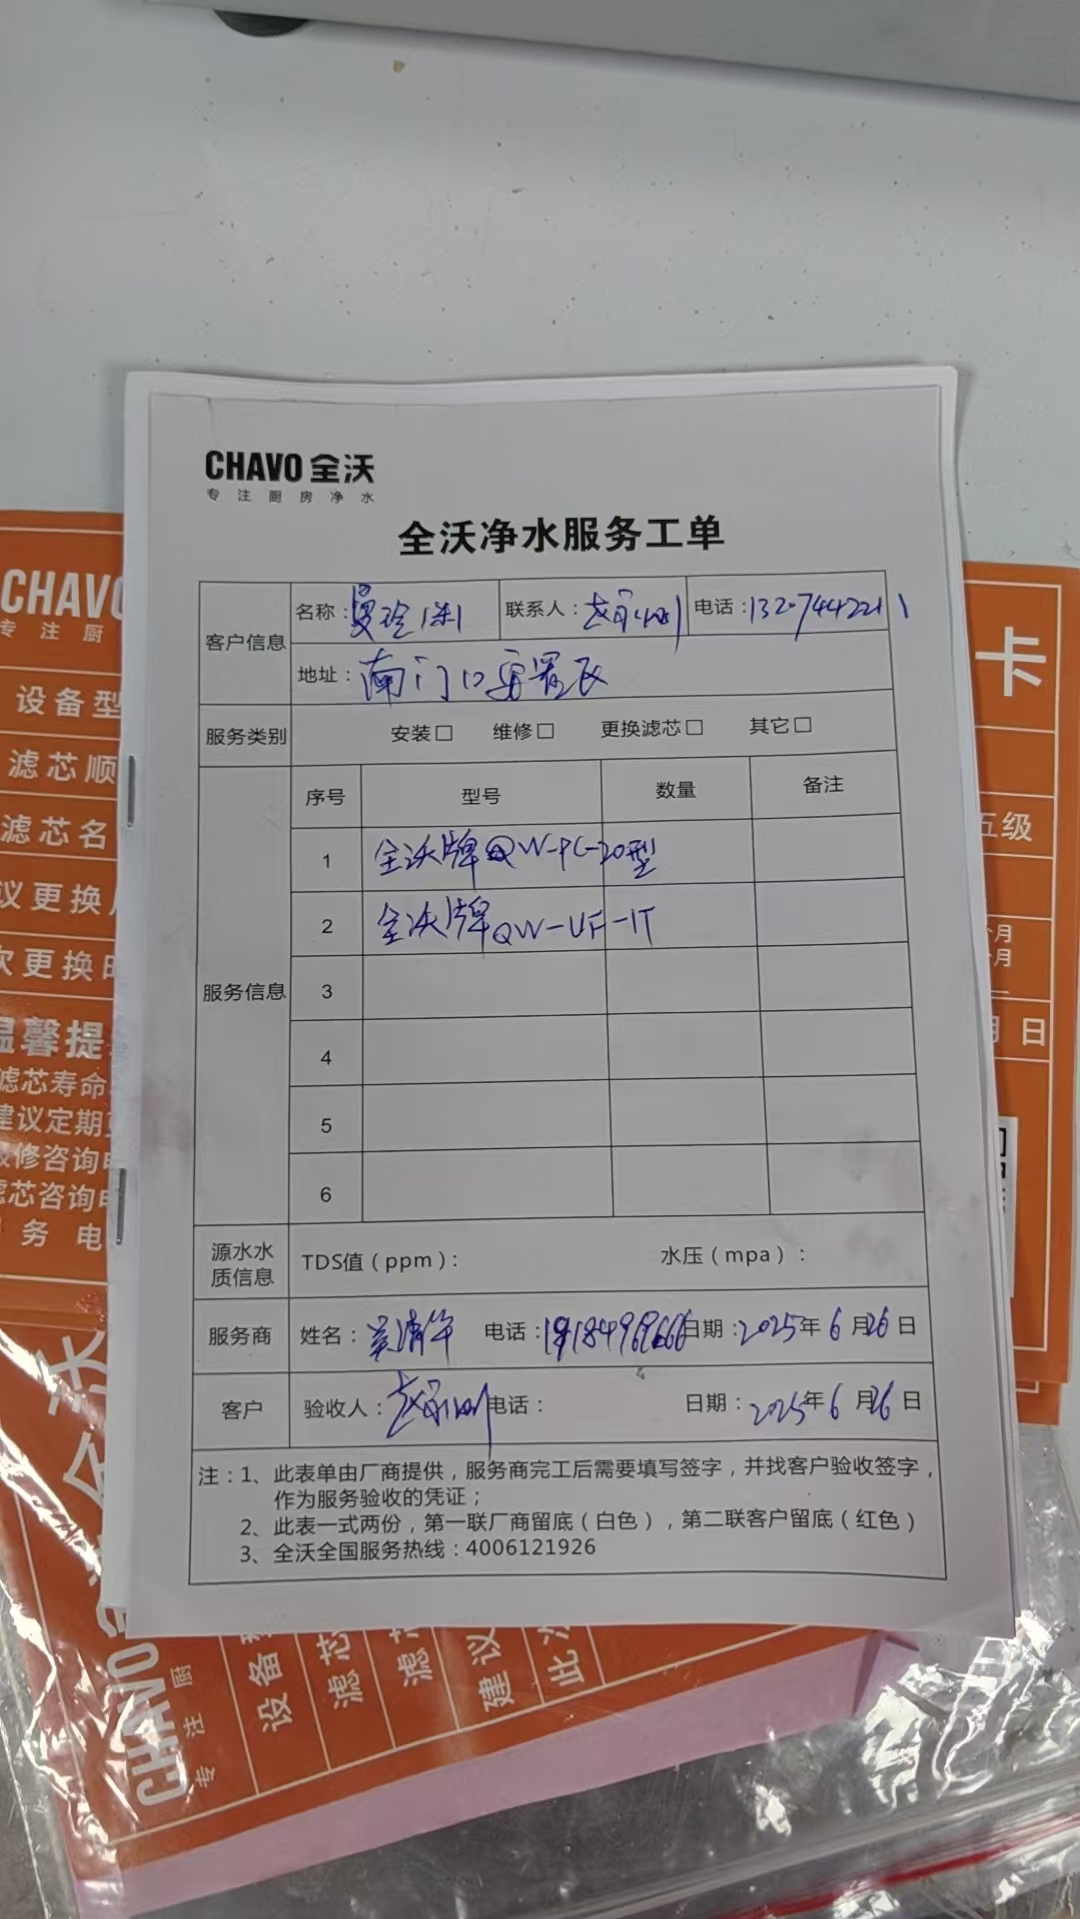 CHAVO 全沃
专注厨房净水
全沃净水服务工单
客户信息 名称： 联系人： 电话：
地址：南门口安置
服务类别 安装□ 维修□ 更换滤芯□ 其它□
服务信息 序号 型号 数量 备注
1 全沃牌QW-PC-20型
2 全沃牌QW-UF-1T
3
4
5
6
源水水质信息 TDS值（ppm）： 水压（mpa）：
服务商 姓名：吴清华 电话： 日期：2025年6月26日
客户 验收人： 电话： 日期：2025年6月26日
注：1、此表单由厂商提供，服务商完工后需要填写签字，并找客户验收签字，
作为服务验收的凭证；
2、此表一式两份，第一联厂商留底（白色），第二联客户留底（红色）
3、全沃全国服务热线：4006121926
CHAVO
专注厨
设备型
滤芯顺
滤芯名
议更换
次更换
温馨提
滤芯寿命
建议定期
维修咨询
滤芯咨询
务电
卡
五级
个月
个月
月 日
CHAVO全沃
专注厨
设备
滤芯
滤
建议
此次